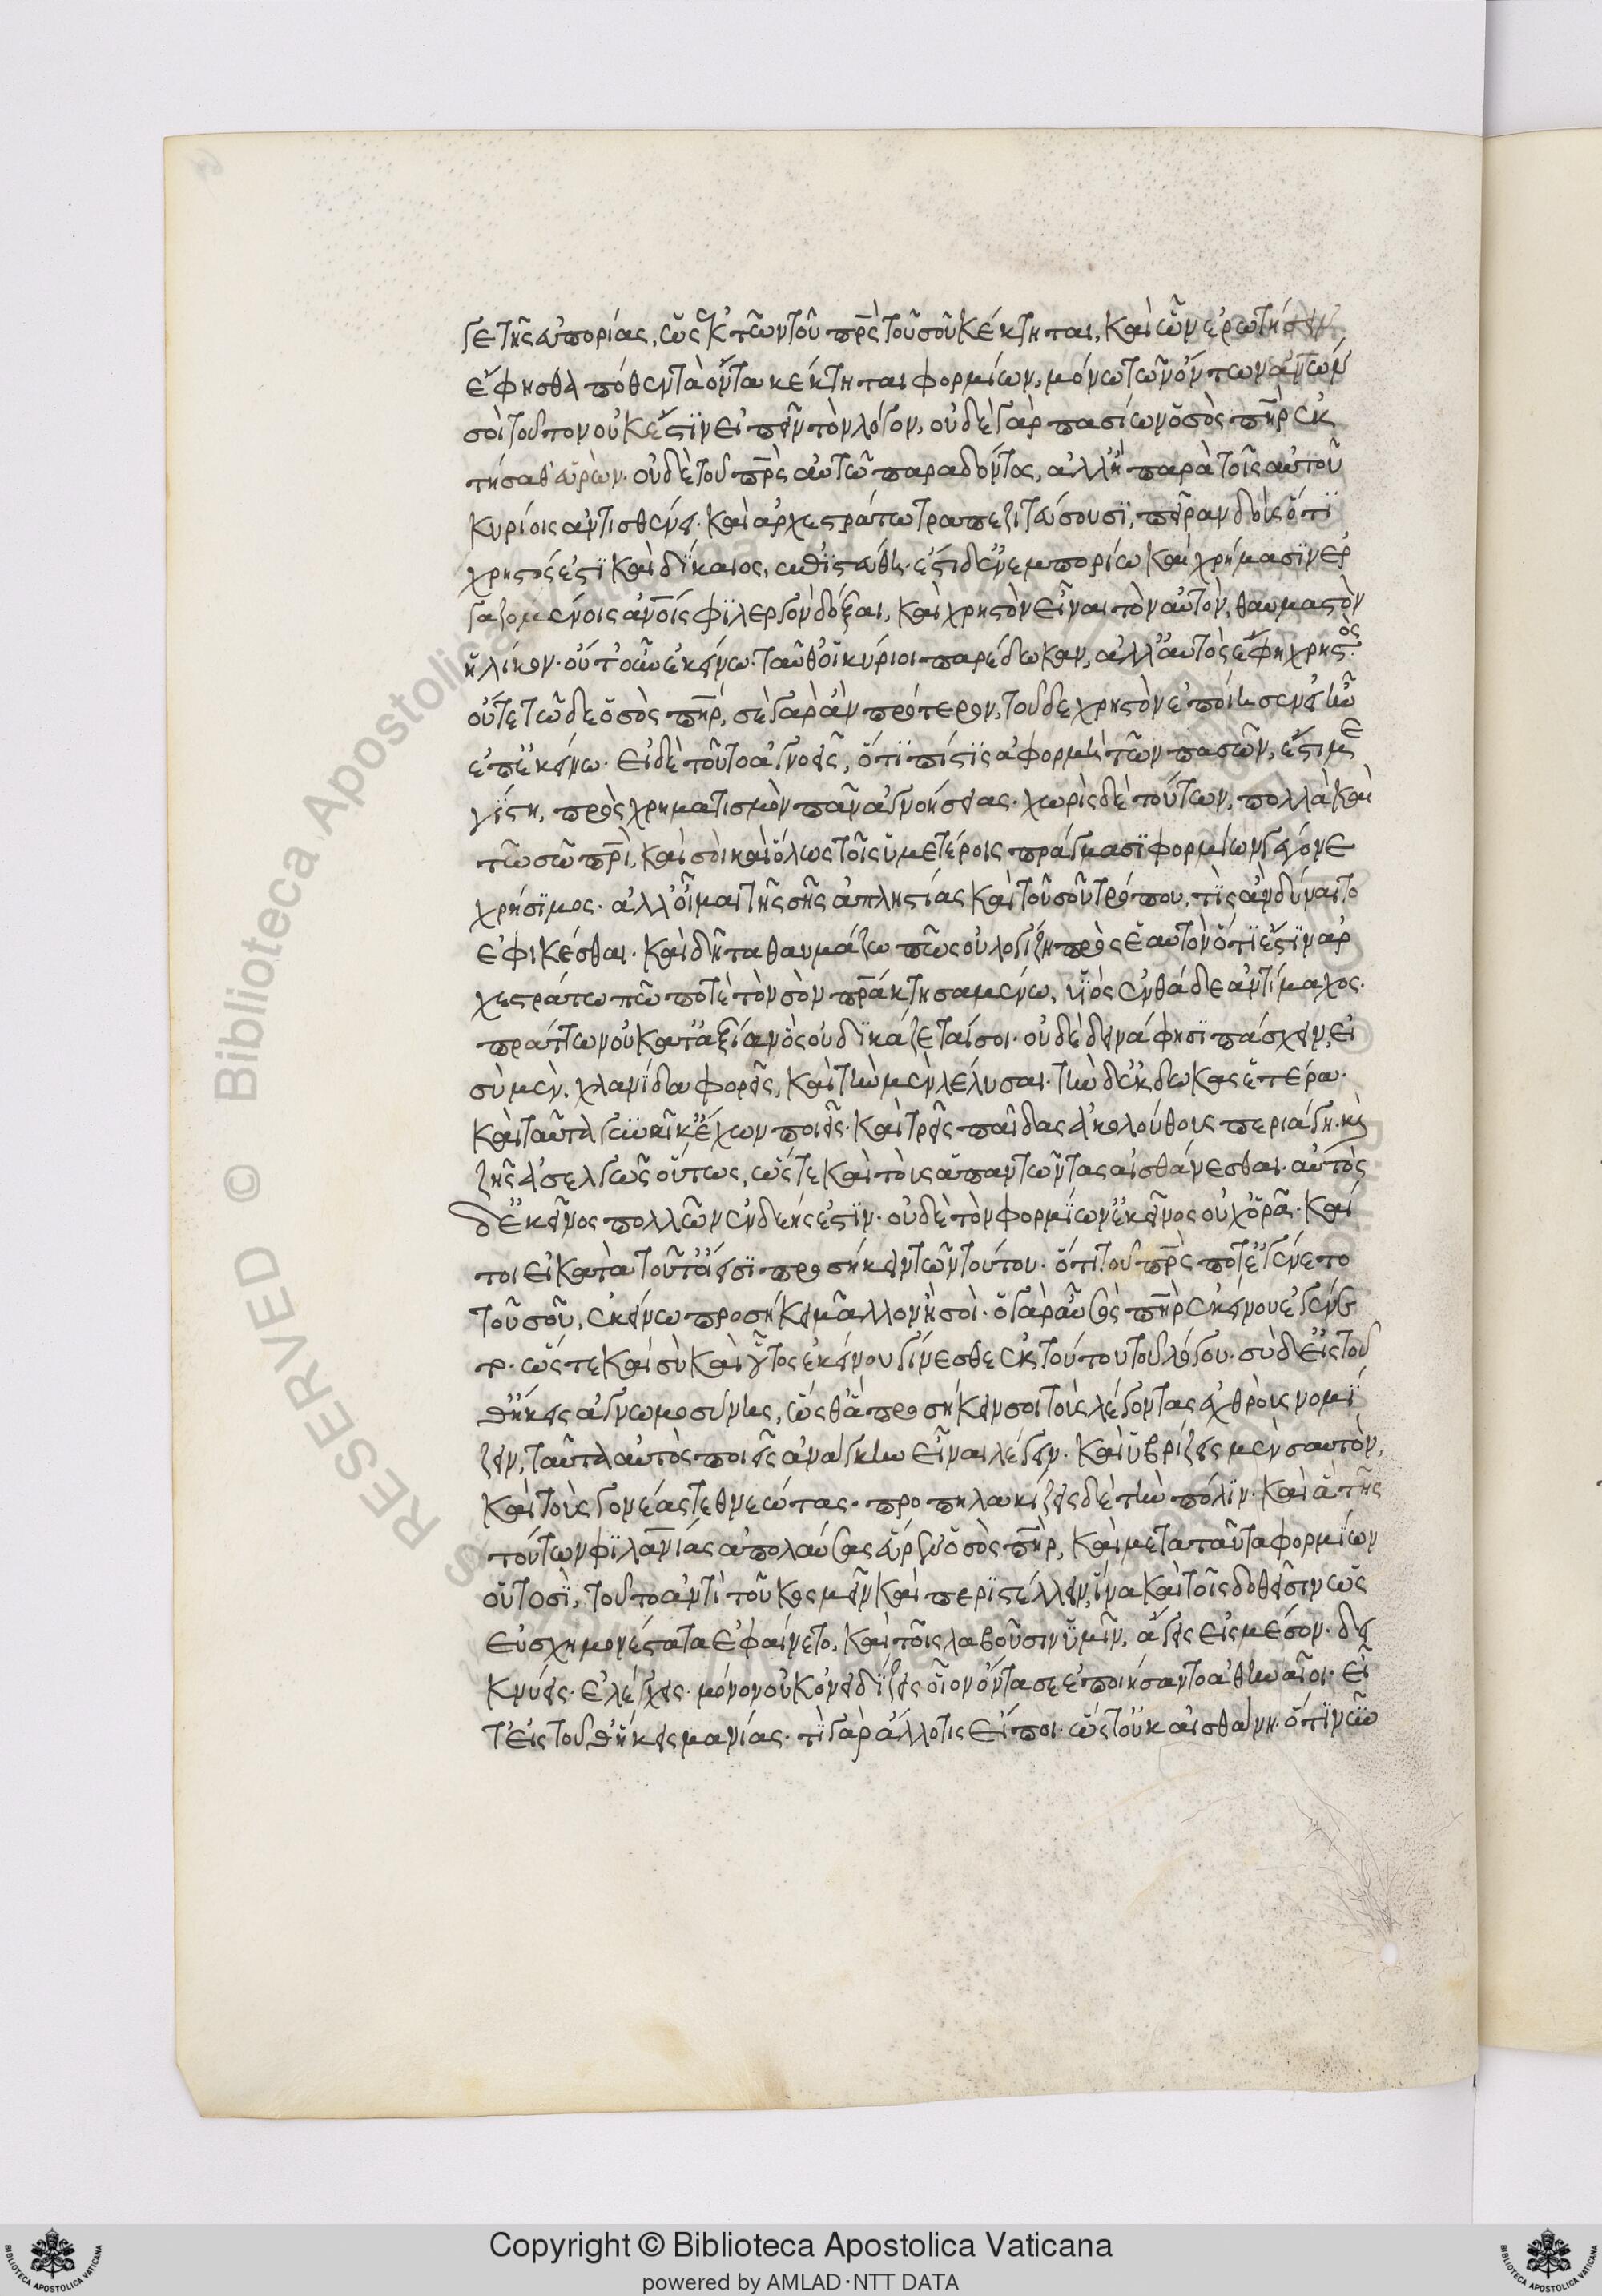 γε τῆς εὐπορίας, ὡς ἐκ τῶν τοῦ πρ̅ς τοῦ σοῦ κέκτηται, καὶ ὧν ἐρωτήσειν
ἔφησθα πόθεν τὰ ὄντα κέκτηται φορμίων, μόνω τῶν ὄντων ἀν̅ων
σοὶ τοῦτον οὐκ ἔστιν εἰπεῖν τὸν λόγον, οὐδὲ γὰρ πασίων ὁ σὸς πη̅ρ ἐκ
τήσαθ' εὑρὼν· οὐδὲ τοῦ πρ̅ς αὐτῶ παραδόντος, ἀλλ' ἢ παρὰ τοῖς αὐτοῦ
κυρίοις ἀντισθένει· καὶ ἀρχεστράτω τραπεζιτεύουσι, πεῖραν δοὺς ὅτι
χρηστός ἐστι καὶ δίκαιος, ἐπιστεύθη· ἔστι δ' ἐν ἐμπορίω καὶ χρήμασιν ἐρ
γαζομένοις ἀν̅οις φιλεργὸν δόξαι, καὶ χρηστὸν εἶναι τὸν αὐτὸν, θαυμαστὸν
ἡλίκον· οὔτ' οὖν ἐκείνω· ταῦθ' οἱ κύριοι παρέδωκαν, ἀλλ' αὐτὸς ἔφη χρηστός·
οὔτε τῶδε ὁ σὸς πη̅ρ, σὲ γὰρ ἂν πρότερον, τοῦδε χρηστὸν ἐποίησεν εἰ ἦν
ἐπ' ἐκείνω· εἰ δὲ τοῦτο ἀγνοεῖς, ὅτι πίστις ἀφορμὴ τῶν πασῶν, ἐστι με
γίστη, πρὸς χρηματισμὸν πᾶν ἀγνοήσειας· χωρὶς δὲ τούτων, πολλὰ καὶ
τῶ σῶ πρ̅ι, καὶ σοὶ καὶ ὅλως τοῖς ὑμετέροις πράγμασι φορμίων γέγονε
χρήσιμος· ἀλλ' οἶμαι τῆς σῆς ἀπληστίας καὶ τοῦ σοῦ τρόπου, τίς ἂν δύναιτο
ἐφικέσθαι· καὶ δῆτα θαυμάζω πῶς οὐ λογίζη πρὸς ἑαυτὸν ὅτι ἔστιν ἀρ
χεστράτω τῶ ποτὲ τὸν σὸν πρ̅α κτησαμένω, υἱὸς ἐνθάδε ἀντίμαχος·
πράττων οὐ κατ' ἀξίαν ὃς οὐ δικάζεταί σοι· οὐδὲ δεινά φησι πάσχειν, εἰ
σὺ μὲν, χλανίδα φορεῖς, καὶ τὴν μὲν λέλυσαι· τὴν δ' ἐκδέδωκας ἑτέραν·
καὶ ταῦτα γυναῖκ' ἔχων ποιεῖς· καὶ τρεῖς παῖδας ἀκολούθους περιάγη· καὶ
ζῆς ἀσελγῶς οὕτως, ὥστε καὶ τοὺς ἀπαντῶντας αἰσθάνεσθαι· αὐτὸς
δ' ἐκεῖνος πολλῶν ἐνδεής ἐστιν· οὐδὲ τὸν φορμίων' ἐκεῖνος οὐχ ὁρᾶ· καί
τοι εἰ κατὰ τοῦτ' οἴει σοι προσήκειν τῶν τούτου· ὅτι τοῦ πρ̅ς ποτ' ἐγένετο
τοῦ σοῦ, ἐκείνω προσήκει μᾶλλον ἢ σοὶ· ὁ γὰρ αὖ σὸς πη̅ρ ἐκείνου ἐγένε
το· ὥστε καὶ σὺ καὶ οὗτος ἐκείνου γίνεσθε ἐκ τούτου τοῦ λόγου· σὺ δ' εἰς τοῦ
θ' ἥκεις ἀγνωμοσύνης, ὥσθ' ἃ προσήκει σοι τοὺς λέγοντας ἐχθροὺς νομί
ζειν, ταῦτα αὐτὸς ποιεῖς ἀνάγκην εἶναι λέγειν· καὶ ὑβρίζεις μὲν σαυτὸν,
καὶ τοὺς γονέας τεθνεῶτας· προπηλακίζεις δὲ τὴν πόλιν· καὶ ἃ τῆς
τούτων φιλαν̅ιας ἀπολαύσας εὕρετ' ὁ σὸς πη̅ρ, καὶ μετὰ ταῦτα φορμίων
οὑτοσὶ, τοῦτο ἀντὶ τοῦ κοσμεῖν καὶ περιστέλλειν, ἵνα καὶ τοῖς δοθεῖσιν ὡς
εὐσχημονέστατα ἐφαίνετο, καὶ τοῖς λαβοῦσιν ὑμῖν, ἄγεις εἰς μέσον· δει
κνύεις· ἐλέγχεις· μόνον οὐκ ὀνειδίζεις οἷον ὄντα σε ἐποιήσαντο ἀθηναῖοι· εἶ
τ' εἰς τοῦθ' ἥκεις μανίας· τί γὰρ ἄλλό τις εἴποι· ὥστ' οὐκ αἰσθάνη· ὅτι νῦν